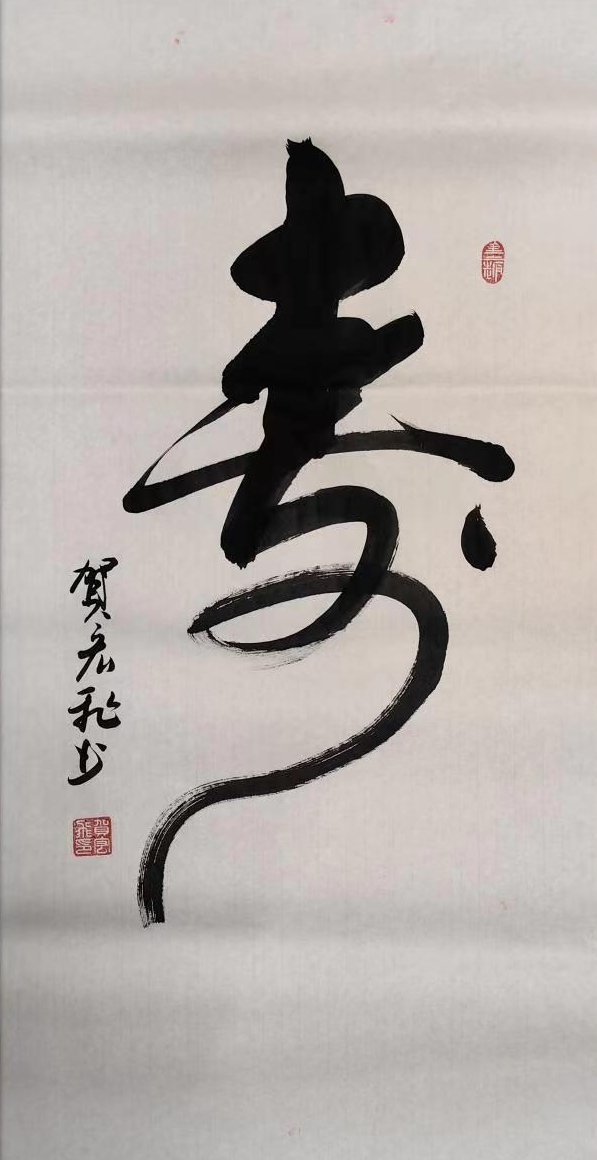 寿
賀宏飛书
賀宏飛印